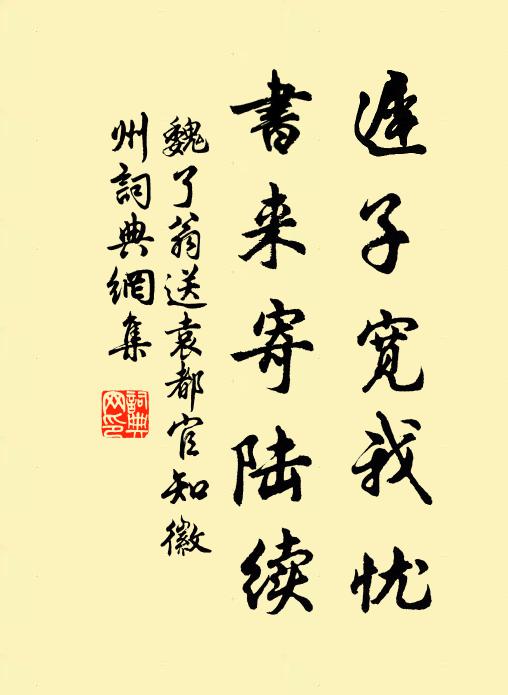 遟子宽我忧
书来寄陆续
魏了翁送袁都官知徽
州词典网集
词典网印